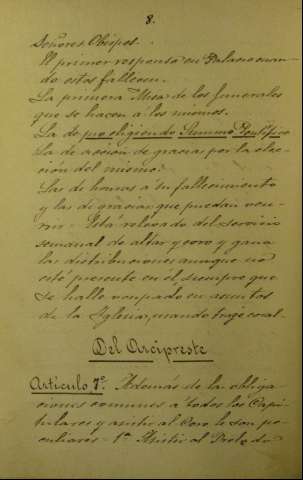 8.
Señores Obispos.
El primer responso en Palacio cuan-
do estos fallecen.
La primera Misa de los funerales
que se hacen a los mismos.
La de pro eligendo Summo Pontifice
La de acción de gracias por la elec-
ción del mismo.
Las de honras a su fallecimiento
y las de gracias que puedan ocu-
rrir. Está relevado del servicio
semanal de altar y coro y gana
las distribuciones aunque no
esté presente en él siempre que
se halle ocupado en asuntos
de la Iglesia, usando traje coral.
Del Arcipreste
Artículo 7º. Además de las obliga-
ciones comunes a todos los Capi-
tulares y asistir al Coro le son pe-
culiares - 1ª Asistir al Prelado